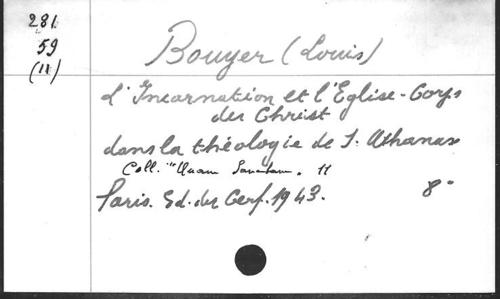 281
59
(11)
Bouyer (Louis)
L'Incarnation et l'Eglise-Corps
du Christ
dans la théologie de S. Athanase
Coll. "Unam Sanctam". 11
Paris. Ed. du Cerf. 1943. 8°